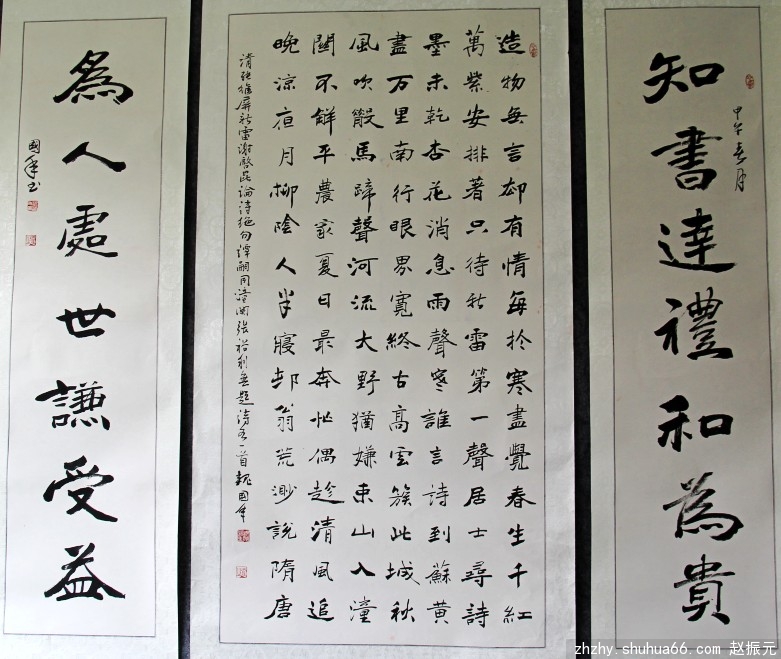 甲午春月
知書達禮和為貴
造物無言却有情每於寒盡覺春生千紅
萬紫安排著只待新雷第一聲居士尋詩
墨未乾杏花消息雨聲寒誰言詩到蘇黃
盡万里南行眼界寬終古高雲簇此城秋
風吹散馬蹄聲河流大野猶嫌束山入潼
關不解平農家夏日最奔忙偶趁清風追
晚涼夜月柳陰人半寢邨翁荒渺說隋唐
清張維屏新雷謝啓昆論詩絕句譚嗣同潼關張裕釗無題詩各一首魏國年
為人處世謙受益
國年书
zhzhy.shuhua66.com 赵振元